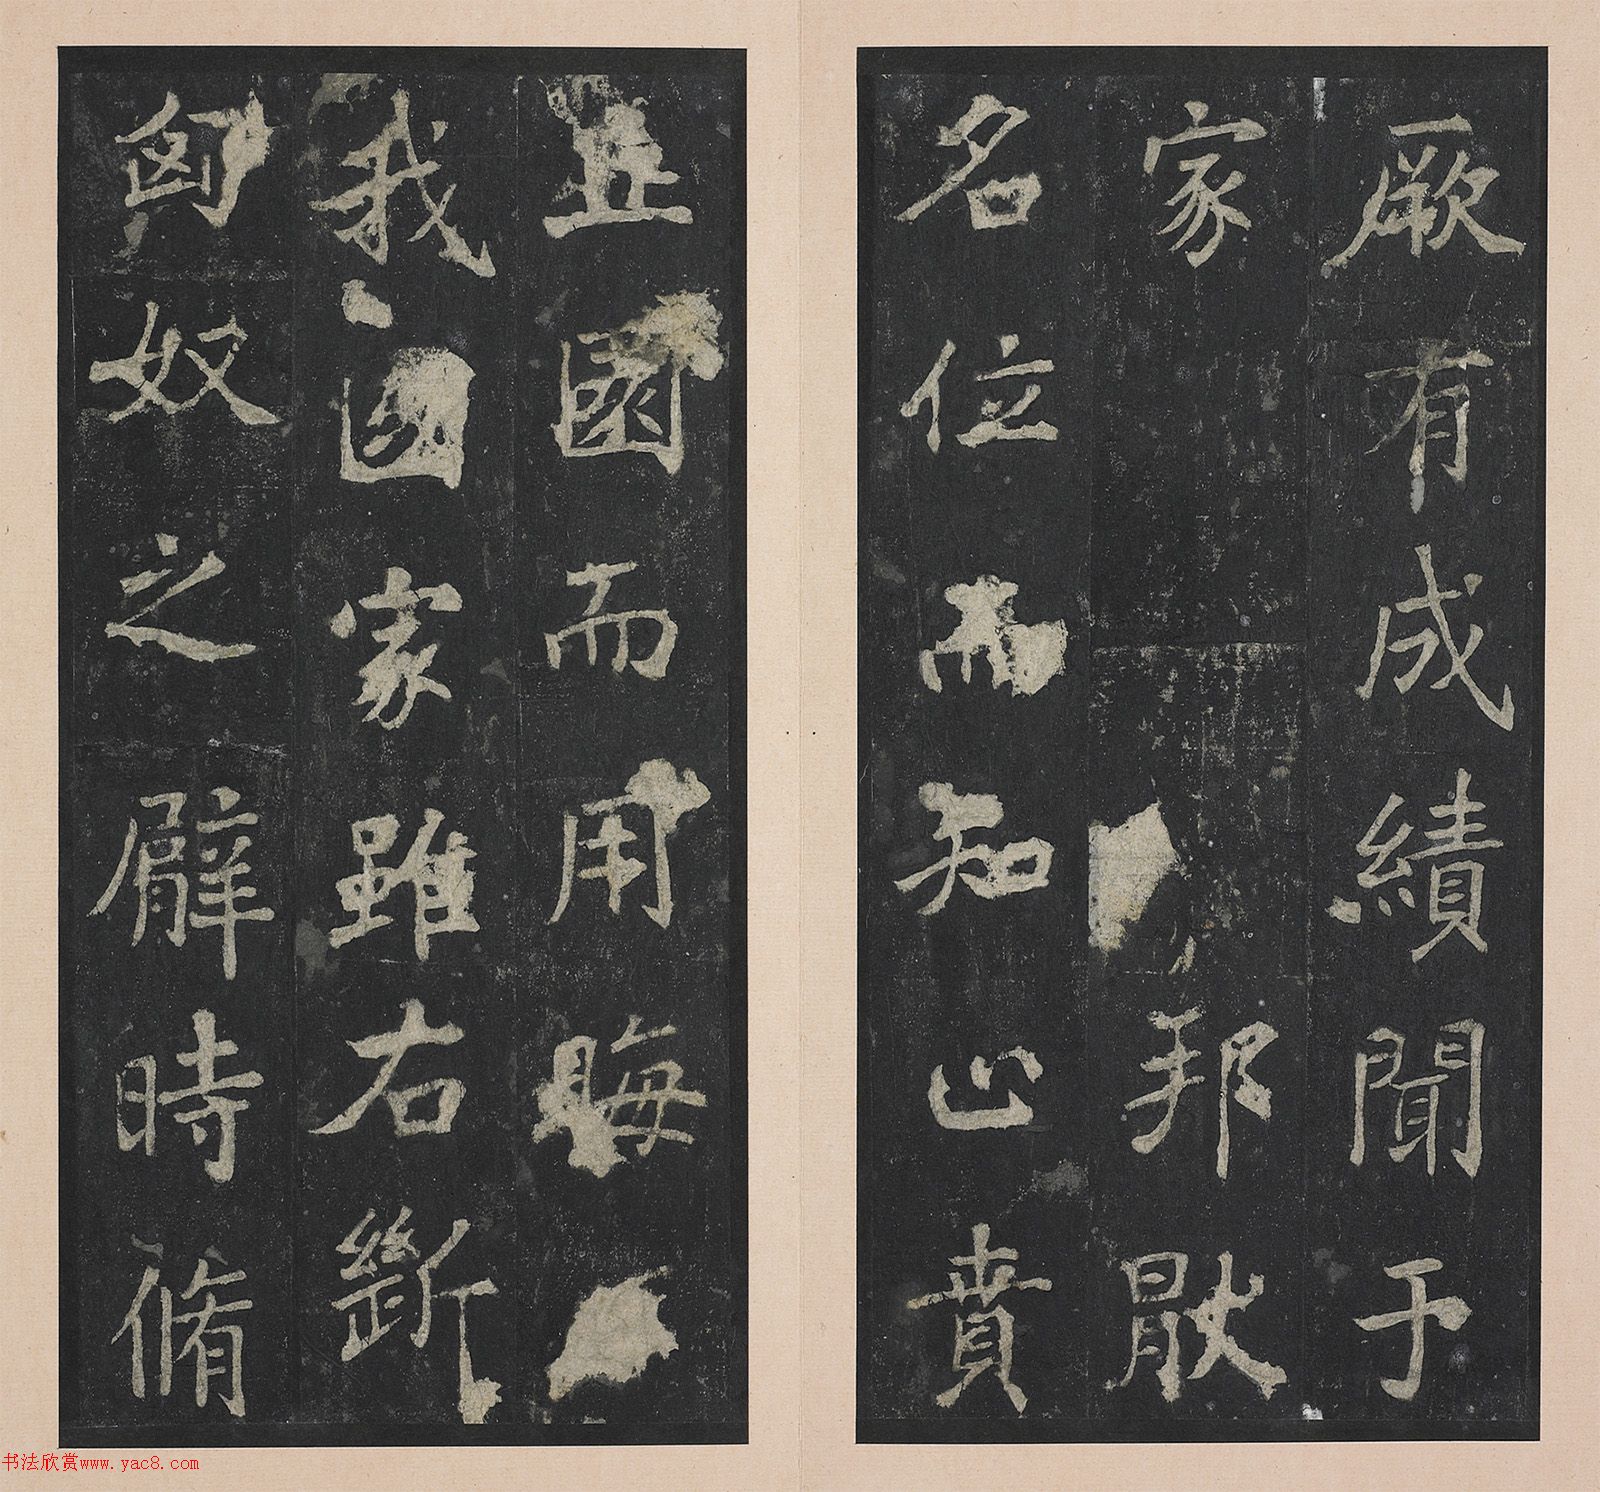 厥有成績聞于
家邦猒
名位而知止賁
丘園而用晦
我國家雖右斷
匈奴之臂時脩
书法欣赏www.yac8.com